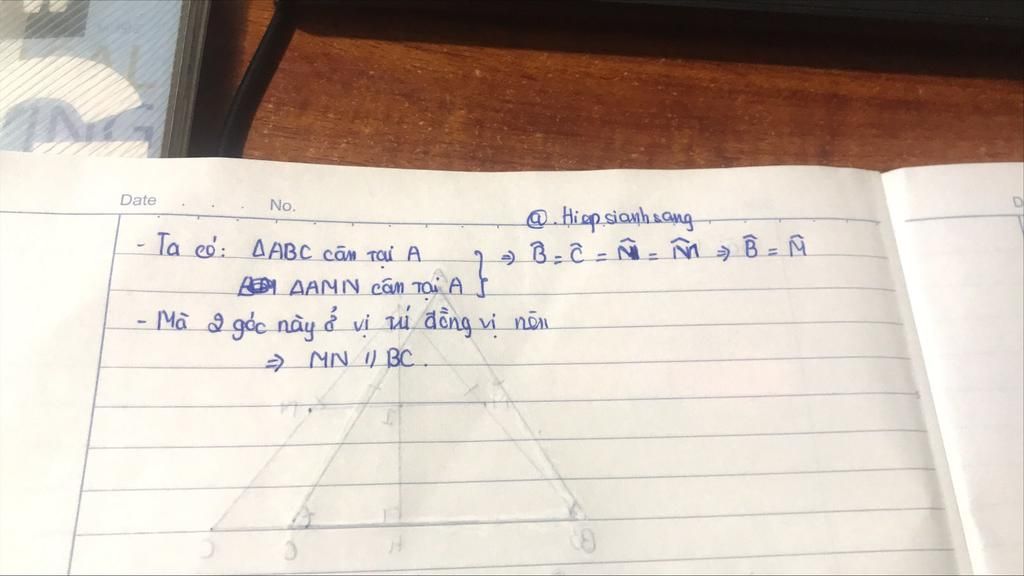 Date . . . No.
@.Hiepsianhsang
- Ta có: ΔABC cân tại A
ΔAMN cân tại A } ⇒ B̂ = Ĉ = N̂ = M̂ ⇒ B̂ = M̂
- Mà 2 góc này ở vị trí đồng vị nên
⇒ MN // BC.